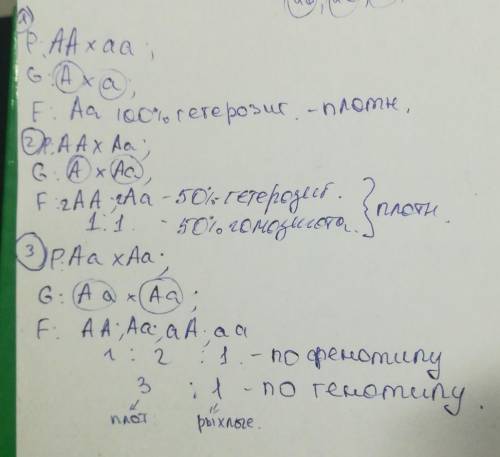 1)
P: AA x aa;
G: A x a;
F: Aa 100% гетерозиг. - плотн.
2 P: AA x Aa;
G: A x Aa;
F: 2AA : 2Aa - 50% гетерозиг. } плотн.
1 : 1. - 50% гомозигота.
3 P: Aa x Aa;
G: Aa x Aa;
F: AA; Aa; aA; aa
1 : 2 : 1 - по фенотипу
3 : 1 - по генотипу.
плот рыхлые.